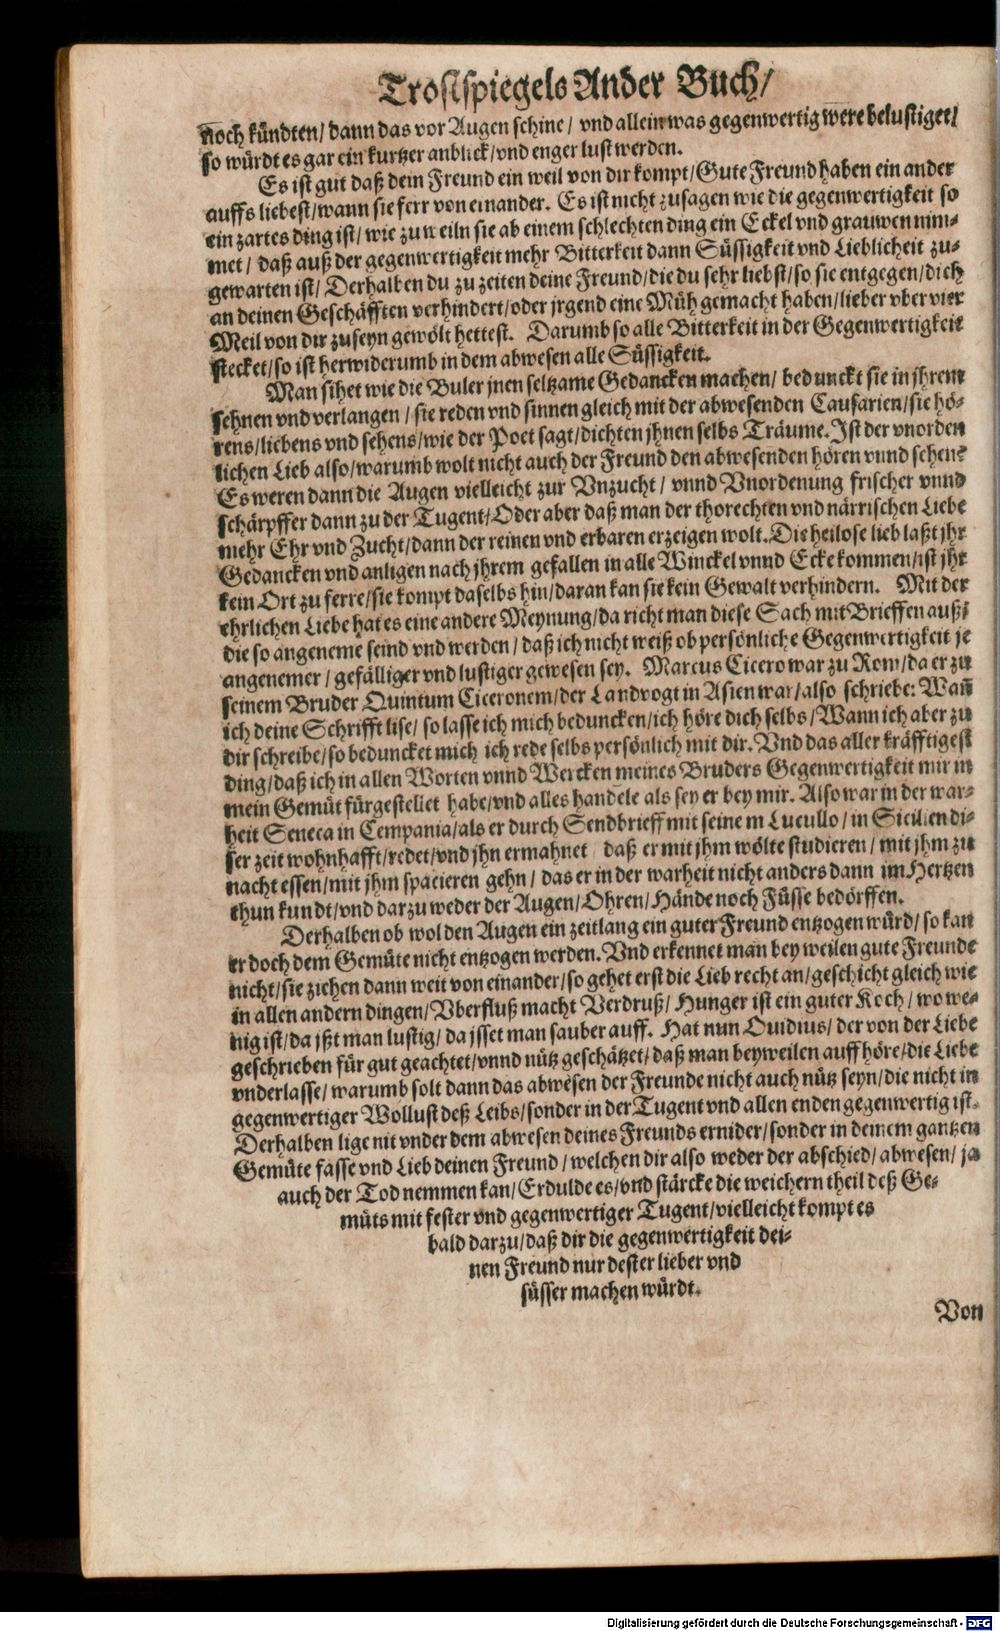 Trostspiegels Ander Buch/
noch kündten/ dann das vor Augen schine/ vnd allein was gegenwertig were belustiget/
so würdt es gar ein kurtzer anblick/ vnd enger lust werden.
Es ist gut daß dein Freund ein weil von dir kompt/ Gute Freund haben ein ander
auffs liebest/ wann sie ferr von einander. Es ist nicht zusagen wie die gegenwertigkeit so
ein zartes ding ist/ wie zu weiln sie ab einem schlechten ding ein Eckel vnd grauwen nim-
met/ daß auß der gegenwertigkeit mehr Bitterkeit dann Süssigkeit vnd Lieblicheit zu-
gewarten ist/ Derhalben du zu zeiten deine Freund/ die du sehr liebst/ so sie entgegen/ dich
an deinen Geschäfften verhindert/ oder jrgend eine Müh gemacht haben/ lieber vber vier
Meil von dir zuseyn gewölt hettest. Darumb so alle Bitterkeit in der Gegenwertigkeit
stecket/ so ist herwiderumb in dem abwesen alle Süssigkeit.
Man sihet wie die Buler jnen seltzame Gedancken machen/ bedunckt sie in jhrem
sehnen vnd verlangen/ sie reden vnd sinnen gleich mit der abwesenden Caussarien/ sie hö-
rens/ liebens vnd sehens/ wie der Poet sagt/ dichten jhnen selbs Träume. Ist der vnorden
lichen Lieb also/ warumb wolt nicht auch der Freund den abwesenden hören vnnd sehen?
Es weren dann die Augen vielleicht zur Vnzucht/ vnnd Vnordenung frischer vnnd
schärpffer dann zu der Tugent/ Oder aber daß man der thorechten vnd närrischen Liebe
mehr Ehr vnd Zucht/ dann der reinen vnd erbaren erzeigen wolt. Die heilose lieb laßt jhr
Gedancken vnd anligen nach jhrem gefallen in alle Winckel vnnd Ecke kommen/ ist jhr
kein Ort zu ferre/ sie kompt daselbs hin/ daran kan sie kein Gewalt verhindern. Mit der
ehrlichen Liebe hat es eine andere Meynung/ da richt man diese Sach mit Brieffen auß/
die so angeneme seind vnd werden/ daß ich nicht weiß ob persönliche Gegenwertigkeit je
angenemer/ gefälliger vnd lustiger gewesen sey. Marcus Cicero war zu Rom/ da er zu
seinem Bruder Quintum Ciceronem/ der Landvogt in Asien war/ also schriebe: Wañ
ich deine Schrifft lise/ so lasse ich mich beduncken/ ich höre dich selbs/ Wann ich aber zu
dir schreibe/ so beduncket mich ich rede selbs persönlich mit dir. Vnd das aller kräfftigest
ding/ daß ich in allen Worten vnnd Wercken meines Bruders Gegenwertigkeit mir in
mein Gemüt fürgestellet habe/ vnd alles handele als sey er bey mir. Also war in der war-
heit Seneca in Cempania/ als er durch Sendbrieff mit seinem Lucullo/ in Sicilien di-
ser zeit wohnhafft/ redet/ vnd jhn ermahnet daß er mit jhm wölte studieren/ mit jhm zu
nacht essen/ mit jhm spacieren gehn/ das er in der warheit nicht anders dann im Hertzen
thun kundt/ vnd darzu weder der Augen/ Ohren/ Hände noch Füsse bedörffen.
Derhalben ob wol den Augen ein zeitlang ein guter Freund entzogen würd/ so kan
er doch dem Gemüte nicht entzogen werden. Vnd erkennet man bey weilen gute Freunde
nicht/ sie ziehen dann weit von einander/ so gehet erst die Lieb recht an/ geschicht gleich wie
in allen andern dingen/ Vberfluß macht Verdruß/ Hunger ist ein guter Koch/ wo we-
nig ist/ da jßt man lustig/ da jsset man sauber auff. Hat nun Ouidius/ der von der Liebe
geschrieben für gut geachtet/ vnnd nütz geschätzet/ daß man beyweilen auffhöre/ die Liebe
vnderlasse/ warumb solt dann das abwesen der Freunde nicht auch nütz seyn/ die nicht in
gegenwertiger Wollust deß Leibs/ sonder in der Tugent vnd allen enden gegenwertig ist.
Derhalben lige nit vnder dem abwesen deines Freunds ernider/ sonder in deinem gantzen
Gemüte fasse vnd Lieb deinen Freund/ welchen dir also weder der abschied/ abwesen/ ja
auch der Tod nemmen kan/ Erdulde es/ vnd stärcke die weichern theil deß Ge-
müts mit fester vnd gegenwertiger Tugent/ vielleicht kompt es
bald darzu/ daß dir die gegenwertigkeit dei-
nen Freund nur dester lieber vnd
süsser machen würdt.
Von
Digitalisierung gefördert durch die Deutsche Forschungsgemeinschaft - DFG